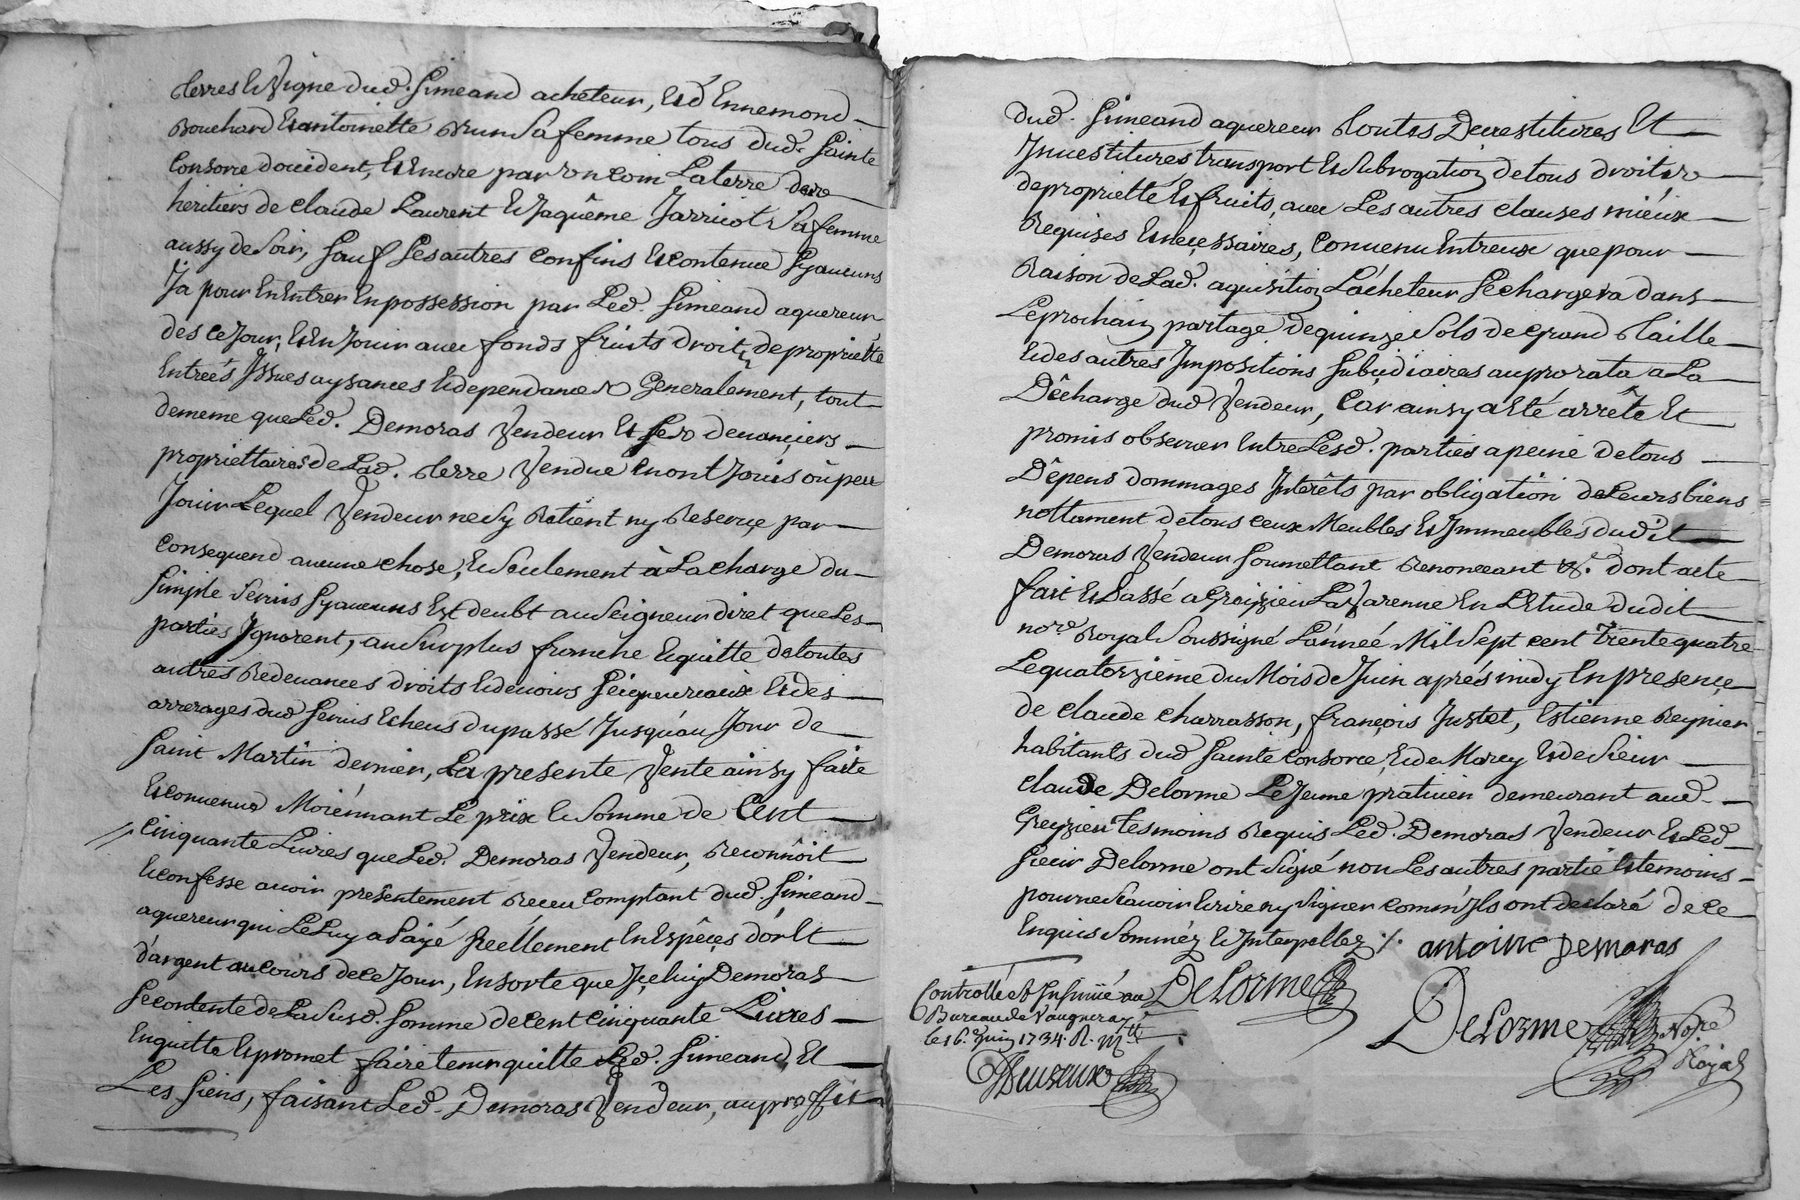 terres & Vigne dud. Simeand acheteur, Et d'Ennemond
Bouchard & antoinette Brun Sa femme tous dud. Sainte
Consorce d'occident, & Encore par un coin La terre des
heritiers de claude Laurent & Jaquême Jarricot Sa femme
aussy de Soir, Sauf Ses autres confins & contenue Sy aucuns
Ja pour En Entrer En possession par Led. Simeand aquereur
des ce Jour, & En Jouir avec fonds fruits droits de proprietté
Entreés Issues aysances & dependances Generalement, tout
de meme que Led. Demoras Vendeur & Ses devançiers
propriettaires de Lad. terre Vendue en ont Jouis où peu
Jouir Lequel Vendeur ne Sy Retient ny Reserve par
consequend aucune chose, & Seulement à La charge du
Simple Servis Sy aucuns Est deubt au Seigneur diret que Les
parties Ignorent, au Surplus franche & quitte de toutes
autres Redevances droits & devoirs Seigneuriaux & des
arrerages dud Servis Echeus du passé Jusqu'au Jour de
Saint Martin dernier, La presente Vente ainsy faite
& convenue Moiénnant Le prix & Somme de Cent
cinquante Livres que Led. Demoras Vendeur, Reconnôit
& confesse avoir presêntement Receu comptant dud Simeand
aquereur qui Le Luy a Païé Reéllement En Espêces d'or Et
d'argent au cours de ce Jour, En sorte que Içeluy Demoras
Se contente de La Susd. Somme de cent cinquante Livres
En quitte & promet faire tenir quitte Led. Simeand, Et
Les Siens, faisant Led. Demoras Vendeur, au proffit
dud. Simeand aquereur toutes Devestitures Et
Investitures transport & Subrogation de tous droits
de proprietté & fruits, avec Les autres clauses miéux
Requises & neçessaires, Convenu Entreux que pour
Raison de Lad. aquisition L'acheteur Se chargera dans
Le prochain partage de quinze Sols de Grand Taille
& des autres Impositions Subsidiaires au prorata a La
Décharge dud Vendeur, Car ainsy a Eté arrêté Et
promis observer Entre Lesd. parties a peine de tous
Dêpens dommages Interêts par obligation de Leurs biens
nottament de tous ceux Meubles & Immeubles dudit
Demoras Vendeur Soumettant Renonceant &c. dont acte
fait & Passé a Greizieu La Varenne En L'Etude dudit
nore. Royal Soussigné L'anneé Mil Sept cent Trente quatre
Le quatorzieme du Mois de Juin aprés midy En presençe
de claude charrasson, françois Justet, Estienne Reynier
habitants dud Sainte Consorce, & de Marcy & de Sieur
claude Delorme Le Jeune pratiçien demeurant aud.
Greyzieu tesmoins Requis Led. Demoras Vendeur & Led
Sieur Delorme ont Signé non Les autres partie & temoins
pour ne Scavoir Ecrire ny Signer comm'Ils ont declaré de ce
Enquis Sommez & Interpellez ./. antoine demoras
Controllé et Insinüé au
Bureau de Vaugneray
le 16e. Juin 1734. R.
DeLorme
DeLorme Nore
Royal